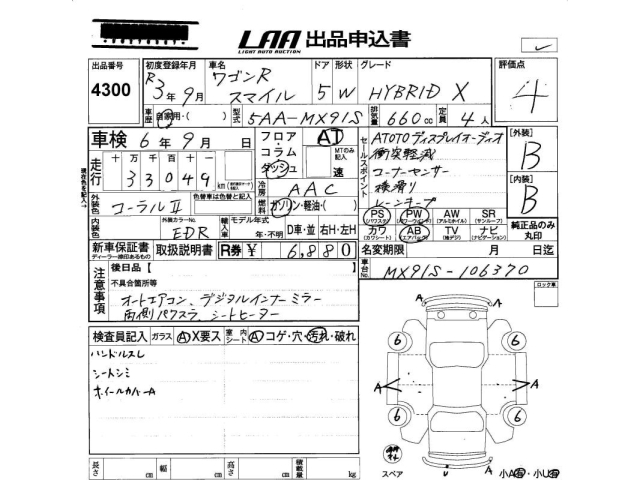 LAA 出品申込書
LIGHT AUTO AUCTION
出品番号 初度登録年月 車名 ドア 形状 グレード 評価点
4300 R3年9月 ワゴンR スマイル 5 W HYBRID X 4
車歴 自家用・( ) 型式 5AA-MX91S 排気量 660cc 定員 4人
車検 6年9月 日 フロア・コラム ダッシュ AT MTのみ記入 速
走行 十万千百十 33049 km
冷房 AAC
燃料 ガソリン・軽油・( )
外装色 コーラルⅡ 色替車は色替と記入
内装色 外装カラーNo. EDR 輸入車 モデル年式 年・不明 D車・並 右H・左H
セールスポイント
ATOTOディスプレイオーディオ
衝突軽減
コーナーセンサー
横滑り
レーンキープ
[外装] B
[内装] B
PS (パワステ) PW (パワーウインド) AW (アルミホイル) SR (サンルーフ)
カワ (カワシート) AB (エアバック) TV (純デジ) ナビ (ナビゲーション)
純正品のみ丸印
新車保証書 取扱説明書 R券 ¥ 6,880
ディーラー捺印あるもの
名変期限 月 日迄
車台No. MX91S-106370
ロック車
注意事項
後日品【 】
不具合箇所等
オートエアコン、デジタルインナーミラー
両側パワスラ、シートヒーター
検査員記入 ガラス A X要ス 室内 シート A コゲ・穴・汚れ・破れ
ハンドルスレ
シートシミ
ホイールカバーA
A
6 6
A A A
6 6
スペア A
小A・小U
長さ cm 幅 cm 高さ cm 積載量 kg